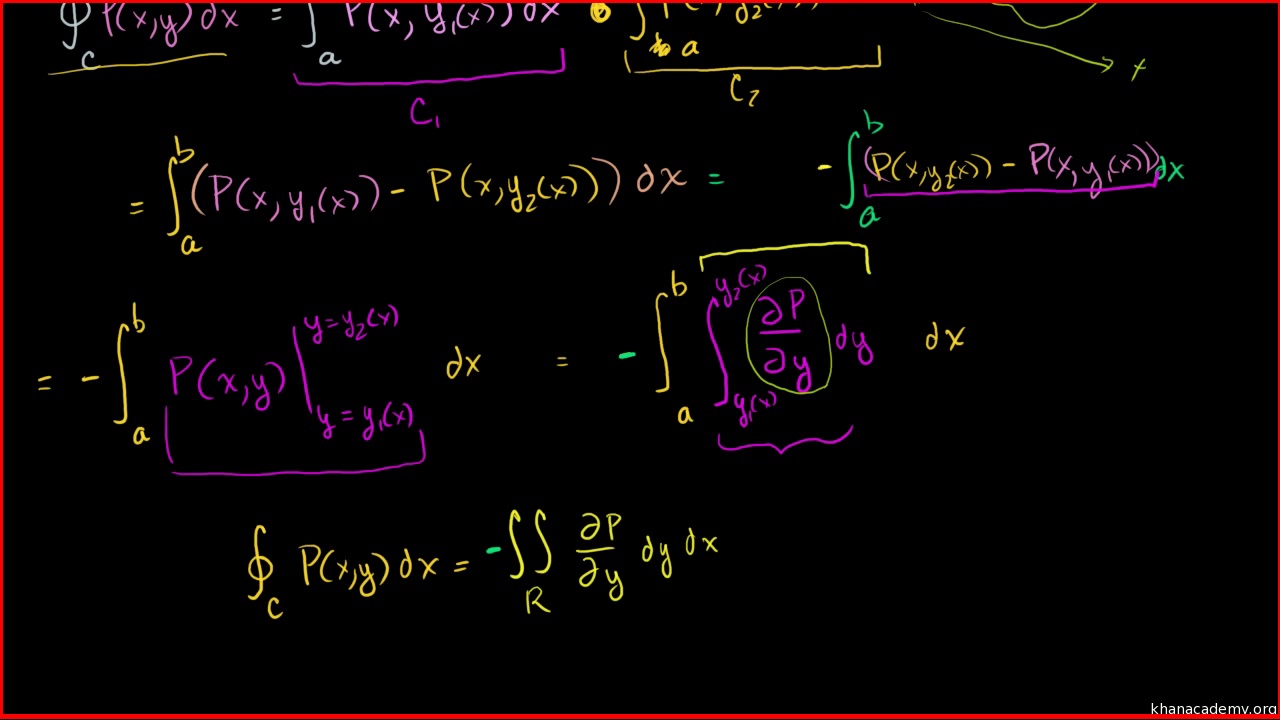 ∮_C P(x,y) dx = ∫_a P(x, y₁(x)) dx
a
C₁ C₂ x
= ∫_a^b (P(x, y₁(x)) - P(x, y₂(x))) dx = - ∫_a^b (P(x, y₂(x)) - P(x, y₁(x))) dx
= - ∫_a^b P(x,y) |_{y = y₁(x)}^{y = y₂(x)} dx = - ∫_a^b ∫_{y₁(x)}^{y₂(x)} ∂P/∂y dy dx
∮_C P(x,y) dx = - ∬_R ∂P/∂y dy dx
khanacademy.org